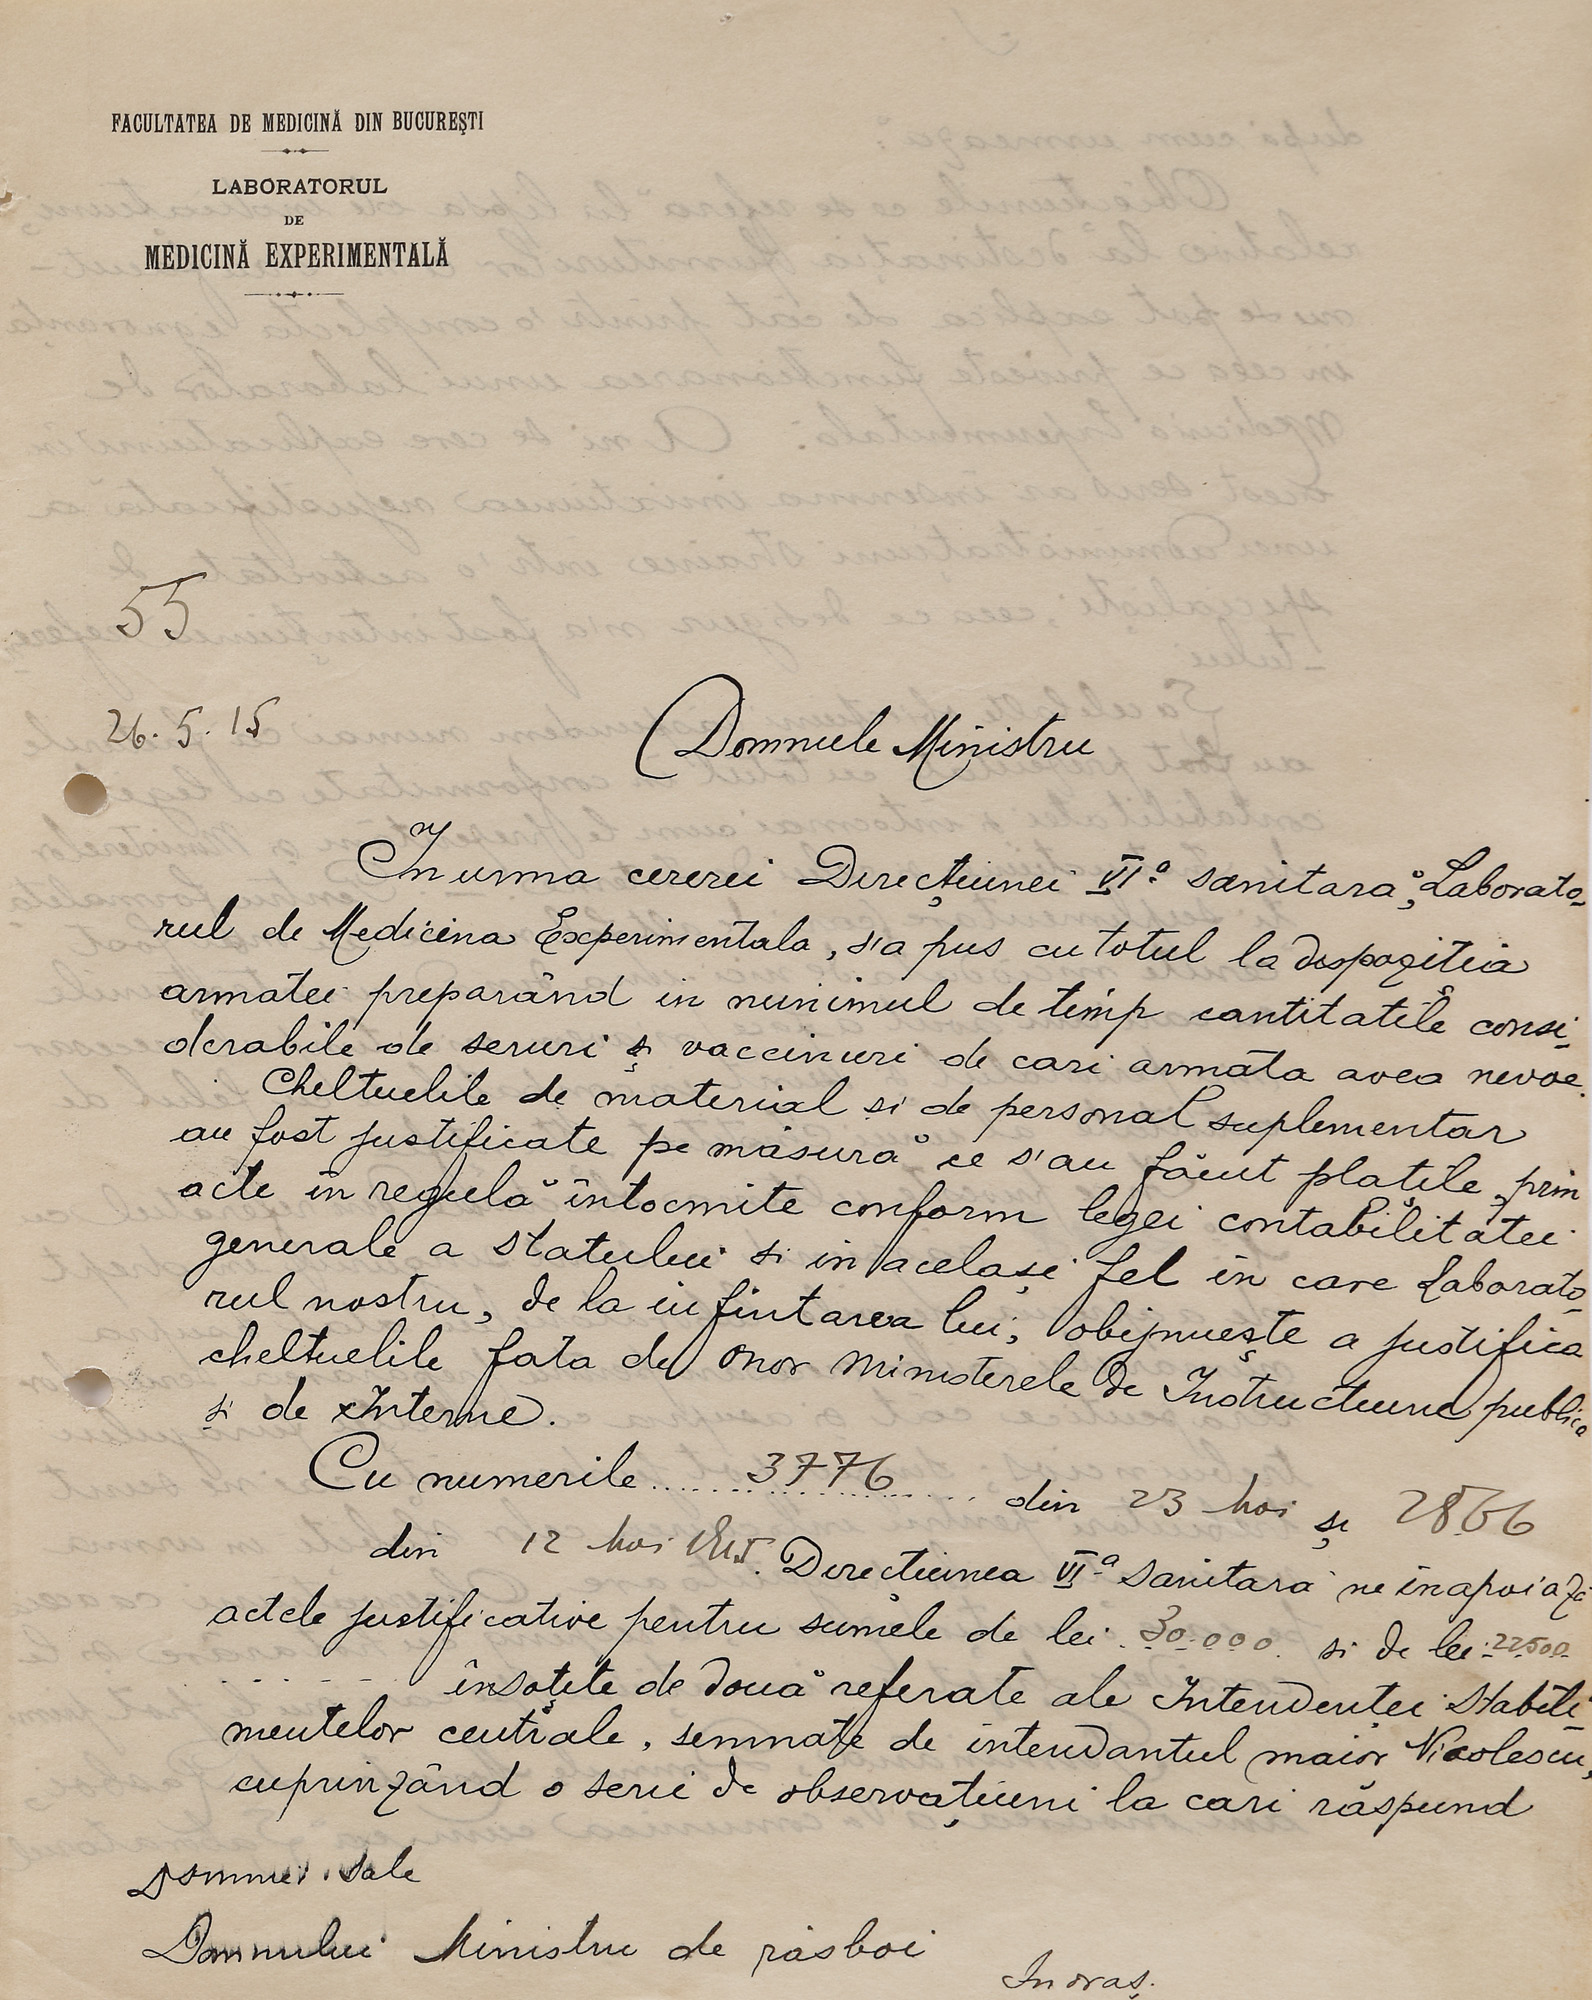 FACULTATEA DE MEDICINĂ DIN BUCUREȘTI
LABORATORUL
DE
MEDICINĂ EXPERIMENTALĂ
55
26. 5. 15
Domnule Ministru
In urma cererei Direcțiunei VI.a sanitară, Laborato-
rul de Medicina Experimentala, s'a pus cu totul la dispoziția
armatei preparând in minimul de timp cantitatile consi-
derabile de seruri și vaccinuri de cari armata avea nevoe.
Cheltuelile de material si de personal suplementar
au fost justificate pe măsură ce s'au făcut platile, prin
acte in regulă întocmite conform legei contabilitatei
generale a statului si in acelaşi fel in care Laborato-
rul nostru, de la infiintarea lui, obijnueşte a justifica
cheltuelile fata de onor Ministerele de Instructiune publica
si de Interne.
Cu numerile .... 3776 ........ din 23 Mai și 2866
din 12 Mai 1915. Directiunea VI.a Sanitara ne inapoiază
actele justificative pentru sumele de lei 30.000 si de lei 22500
însoțite de două referate ale Intendenței Stabili-
mentelor centrale, semnate de intendantul maior Nicolescu,
cuprinzând o serie de observațiuni la cari răspund
Domniei Sale
Domnului Ministru de răsboi
In oraș.